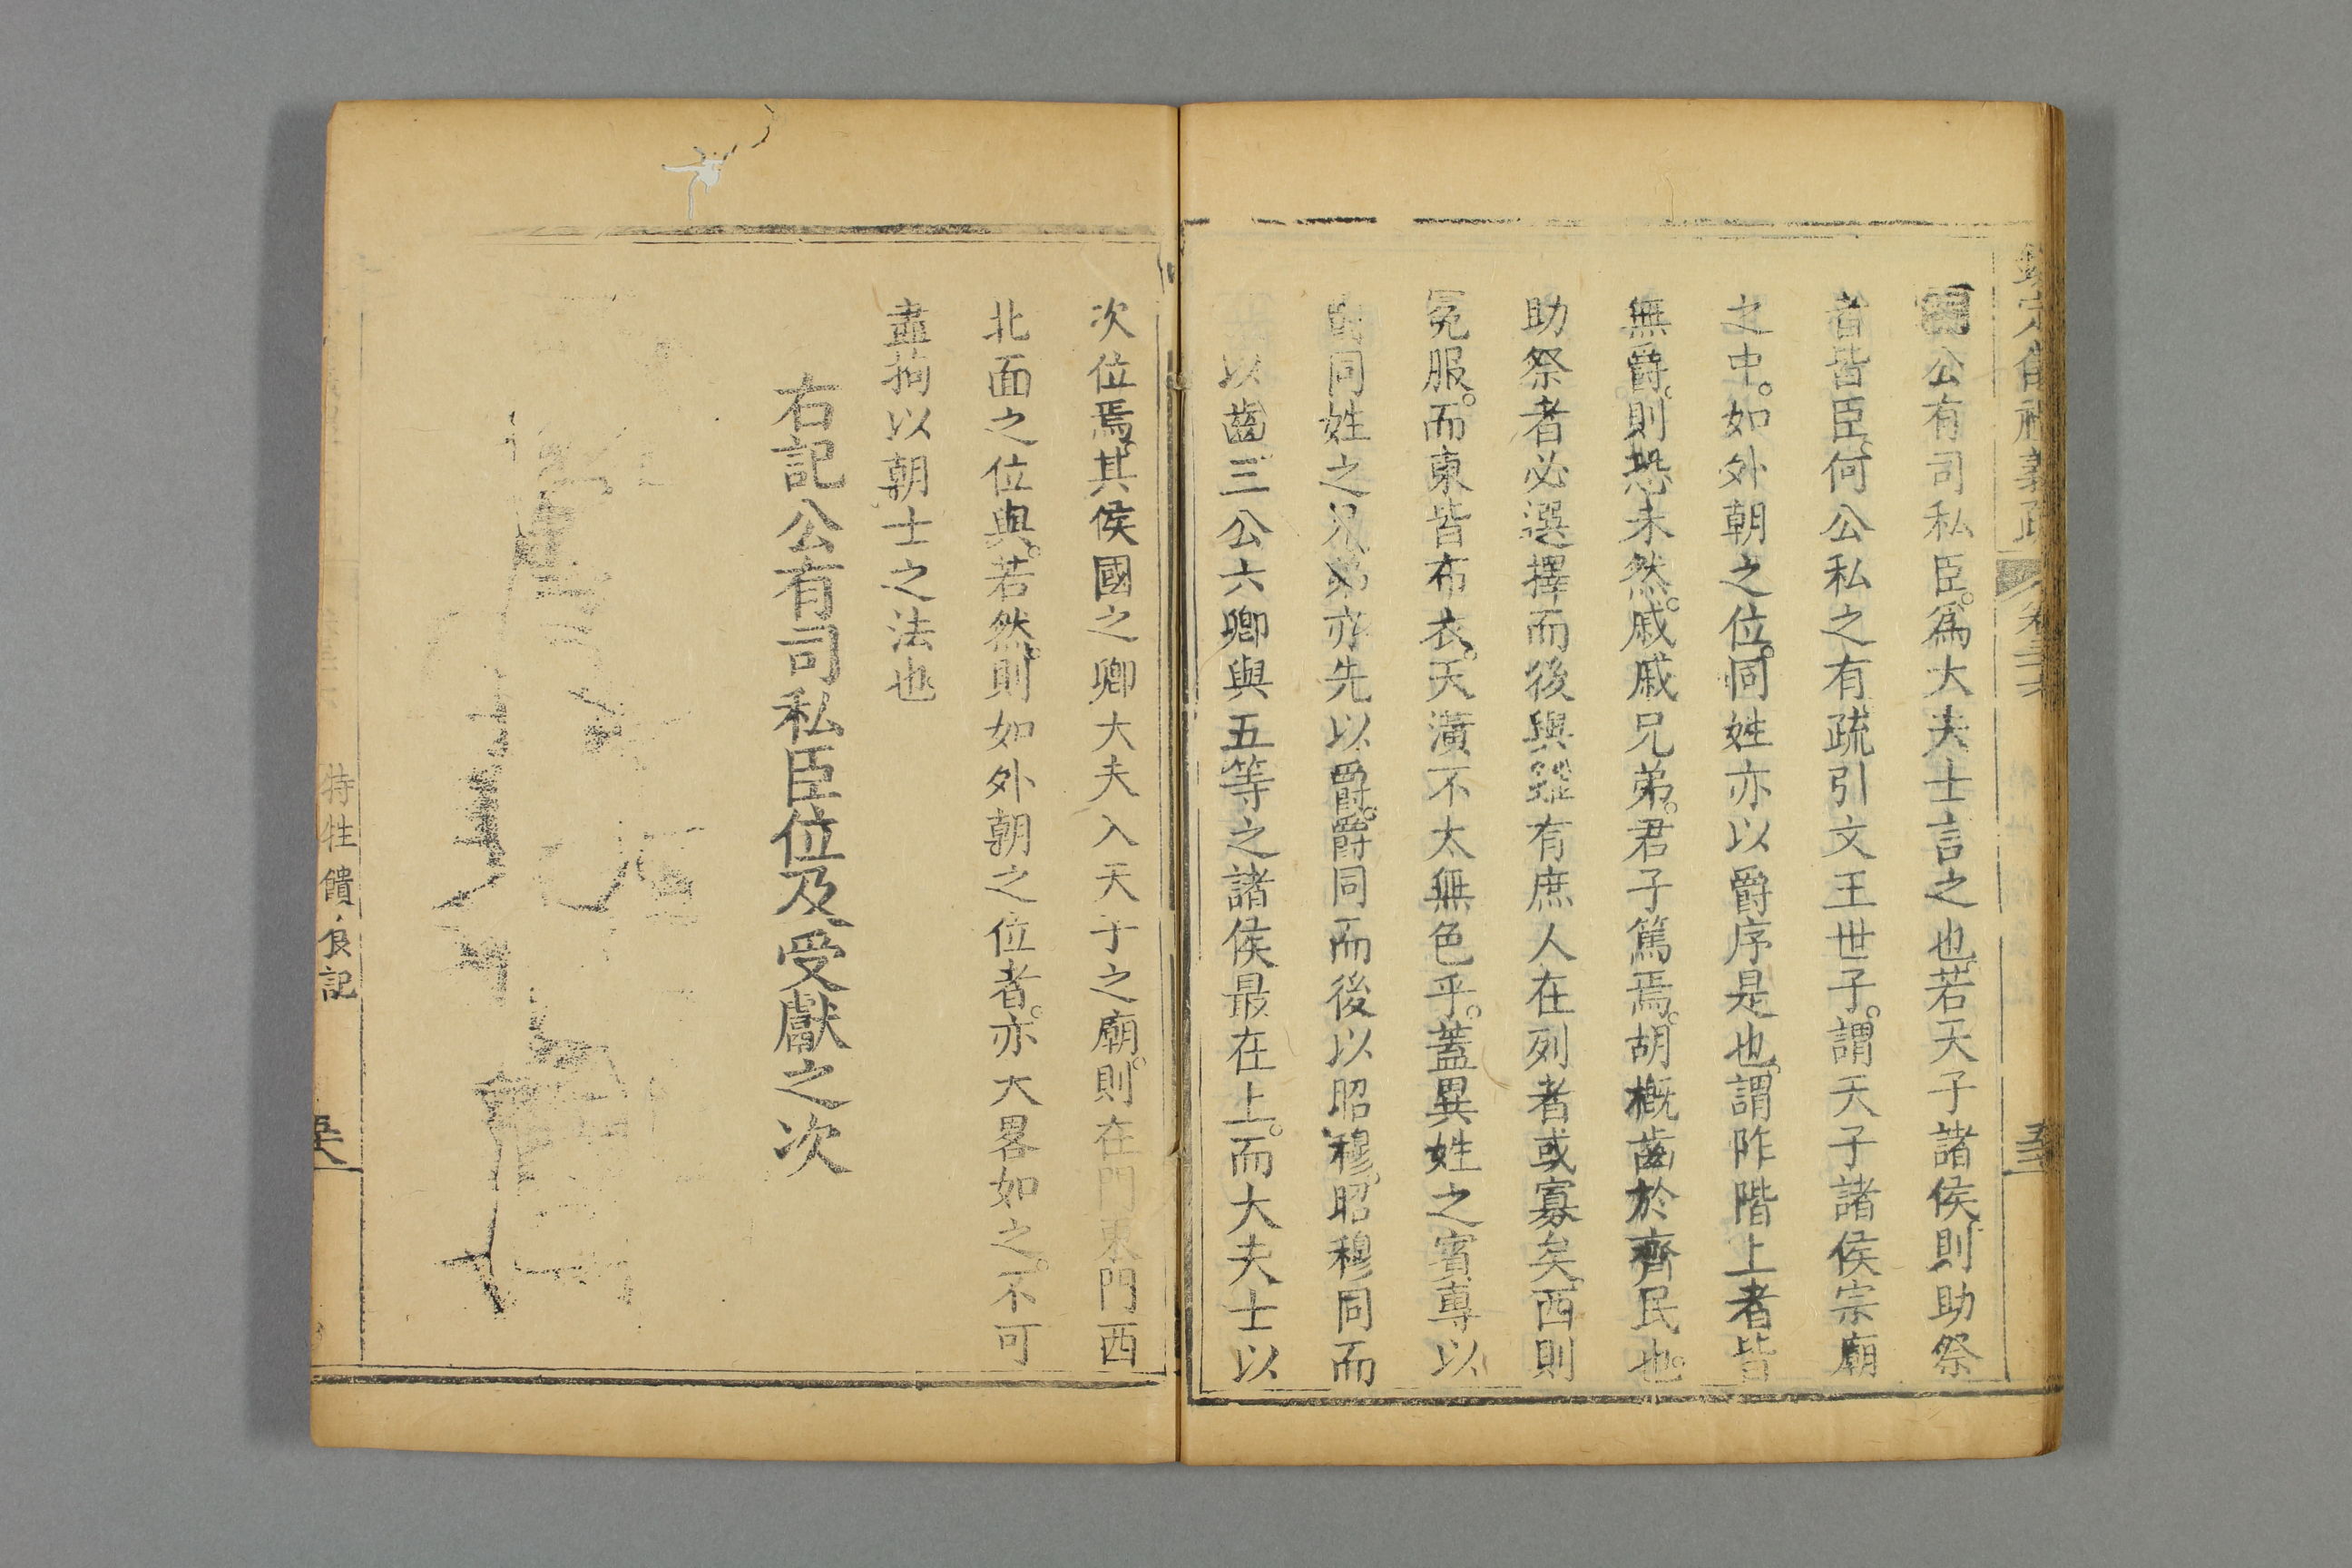 欽定儀禮義疏 卷三十六
公有司私臣。爲大夫士言之也。若天子諸侯。則助祭
者皆臣。何公私之有。疏引文王世子。謂天子諸侯宗廟
之中。如外朝之位。同姓亦以爵序是也。謂阼階上者皆
無爵。則恐未然。戚戚兄弟。君子篤焉。胡概齒於齊民也。
助祭者必選擇而後與。雖有庶人在列者或寡矣。西則
冕服。而東皆布衣。天潢不太無色乎。蓋異姓之賓專以
同姓之兄弟亦先以爵。爵同而後以昭穆。昭穆同而
以齒三公六卿與五等之諸侯最在上。而大夫士以
次位焉。其侯國之卿大夫入天子之廟。則在門東門西
北面之位與。若然。則如外朝之位者。亦大畧如之。不可
盡拘以朝士之法也
右記公有司私臣位及受獻之次
特牲饋食記